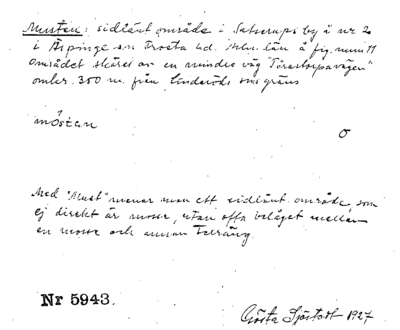 Musten: sidlänt område i Satserups by å nr 2
i Äspinge sn Frosta hd. Mlm. län å fig. num 11
området skäres av en mindre väg "Torastorpavägen"
omkr. 350 m. från Linderöds sns gräns
móstan
o
Med "Must" menar man ett sidlänt område, som
ej direkt är mosse, utan ofta beläget mellan
en mosse och annan terräng.
Nr 5943.
Gösta Sjöstedt 1927